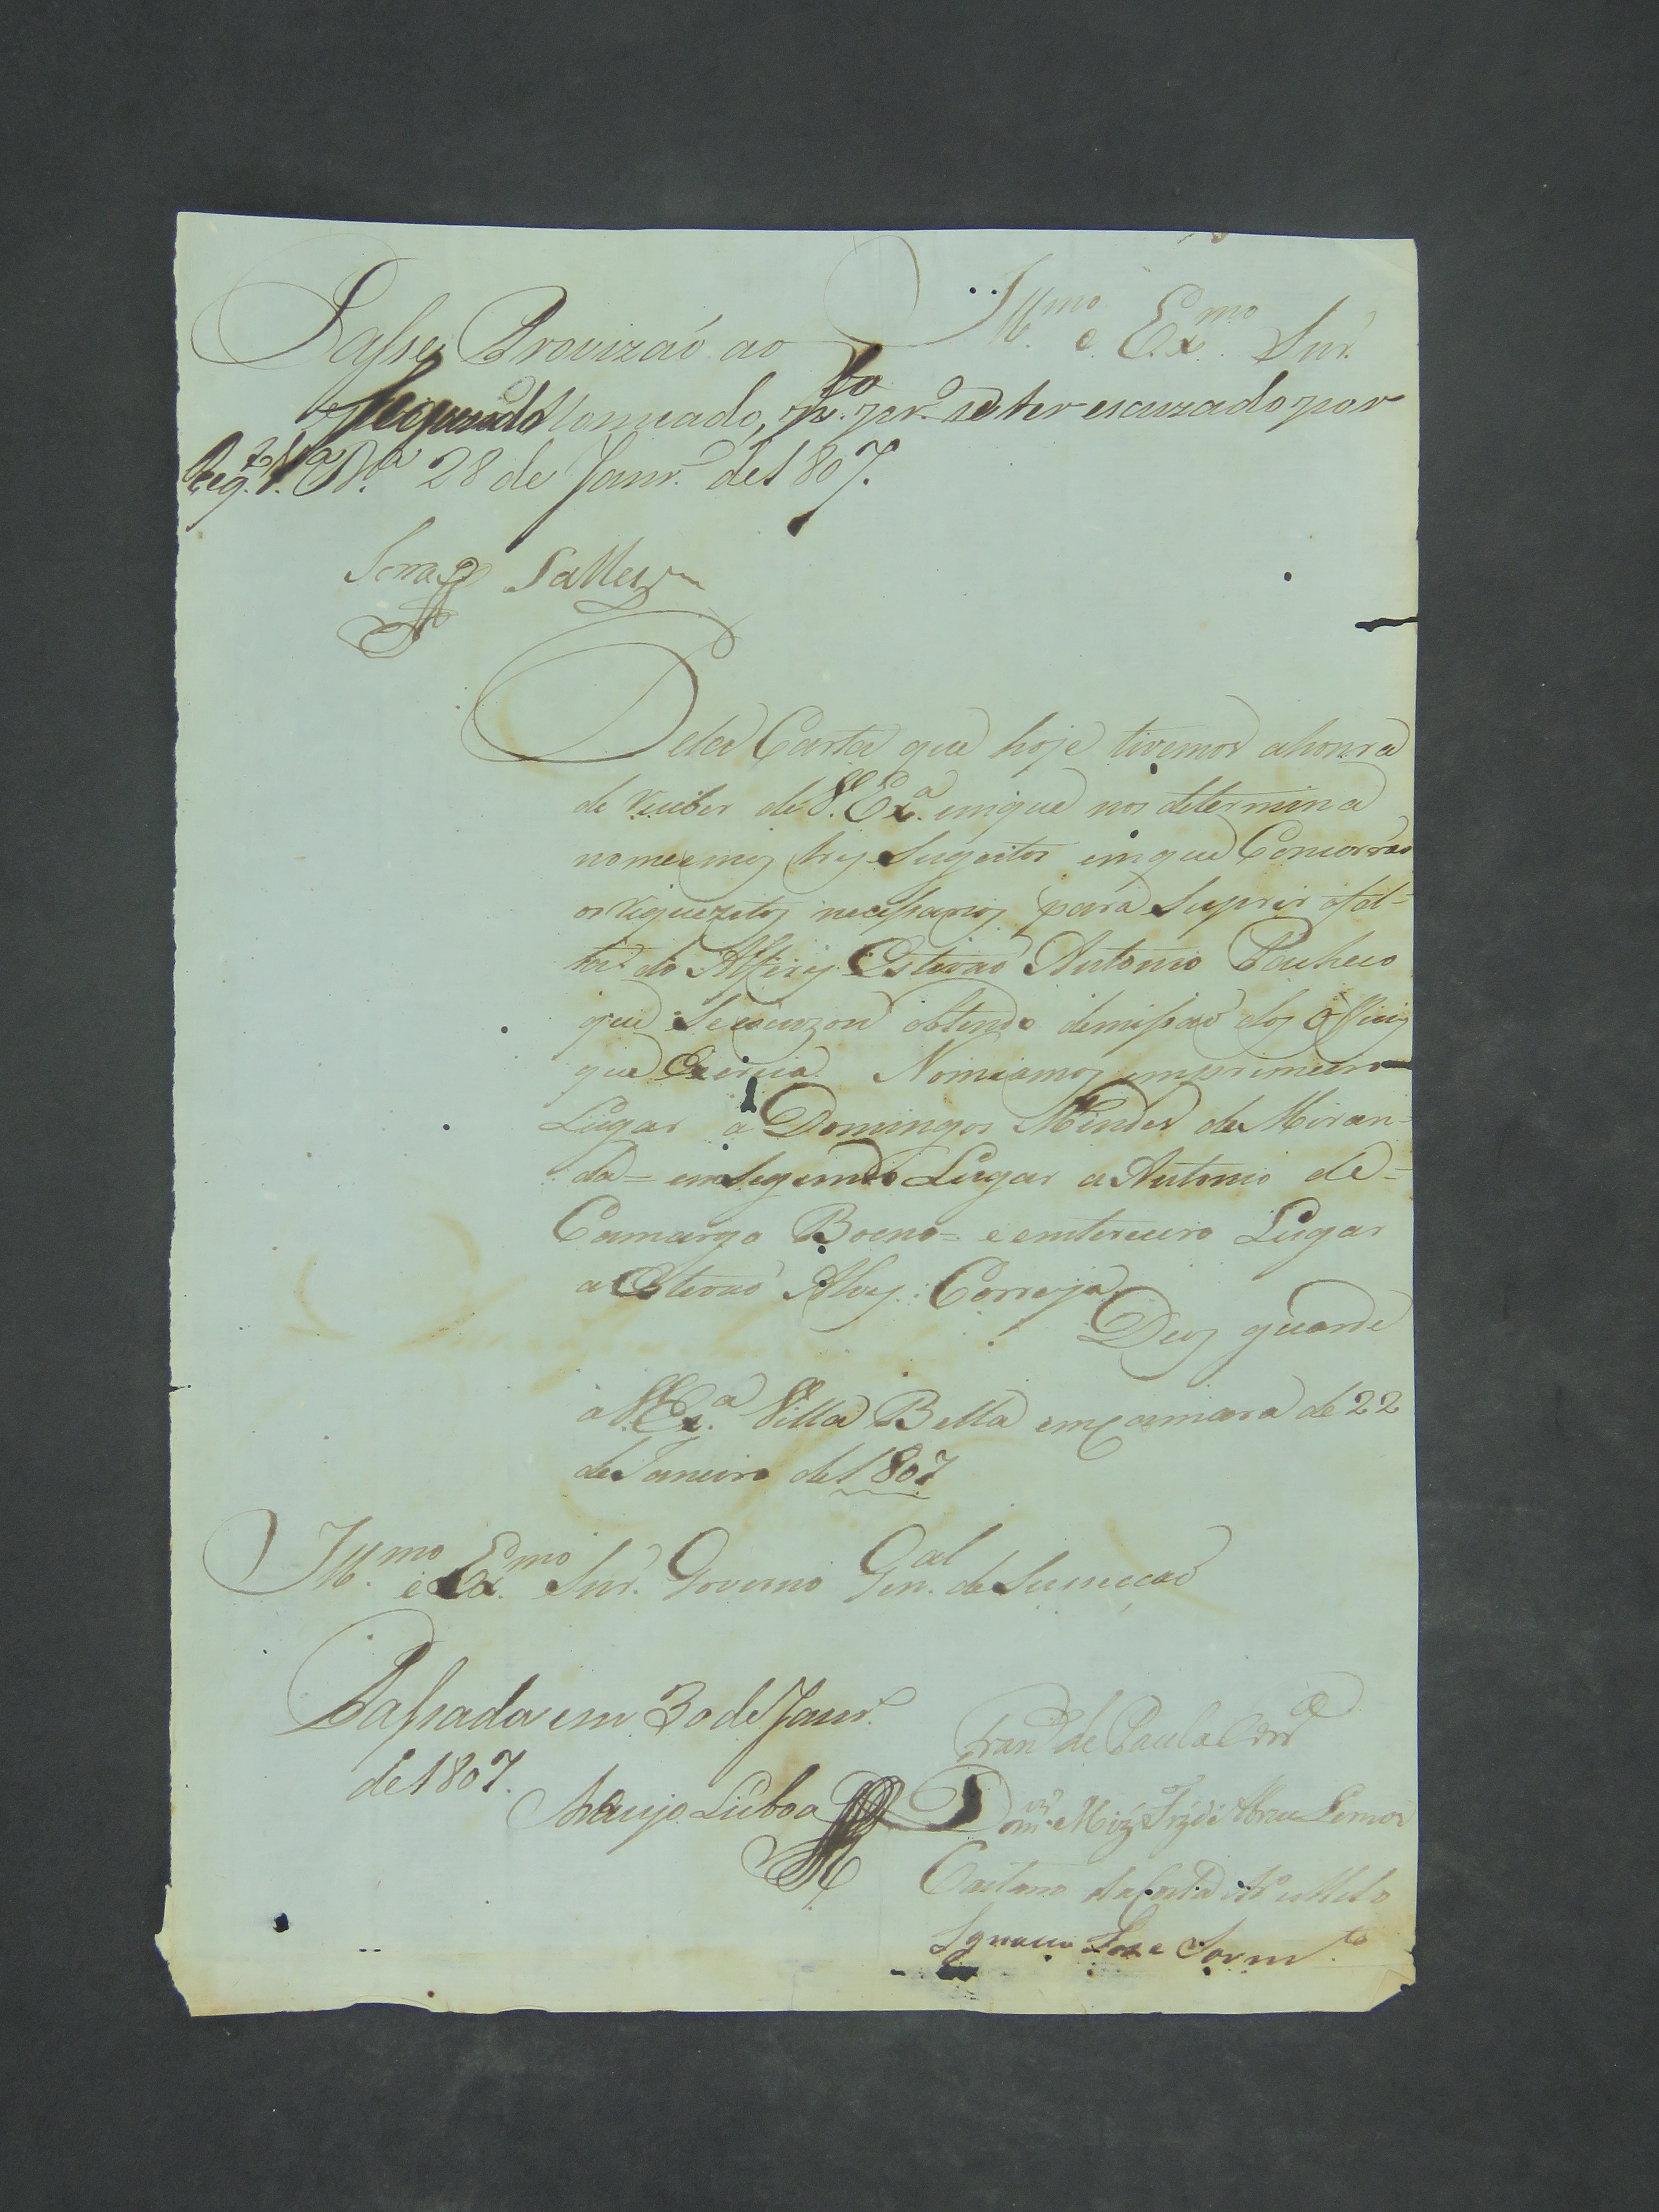 Ill.mo e Ex.mo Snr.
Passe Provizaõ ao
segundo Nomeado, pr.o se ter escuzado por
Req.to V.a B.a 28 de Janr.o de 1807.
Salles
Pela Carta que hoje tivemos ahonra
de receber de V.Ex.a emque nos determina
nomeemos tres Sugeitos emque Concorraõ
os requezitos necessarios para Suprir afal-
ta do Alferes Estevaõ Antonio Pacheco
que Seescuzou obtendo demissaõ dos officios
que Exercia. Nomeamos emprimeiro
Lugar a Domingos Mendes de Miran-
da= emsegundo Lugar a Antonio de=
Camargo Boeno= e emterceiro Lugar
a Estevaõ Alves Correya.
Deos guarde
a V.Ex.a Villa Bella emCamara de 22
de Janeiro de 1807
Ill.mo e Ex.mo Snr. Governo Gen.al de Sucecaõ
Passada em 30 de Janr.o
de 1807.
Araujo Lisboa
Fran.co de Paula
de Abreu Lemos
Caetano da Costa e Mello
Ignacio Joze Sarm.to